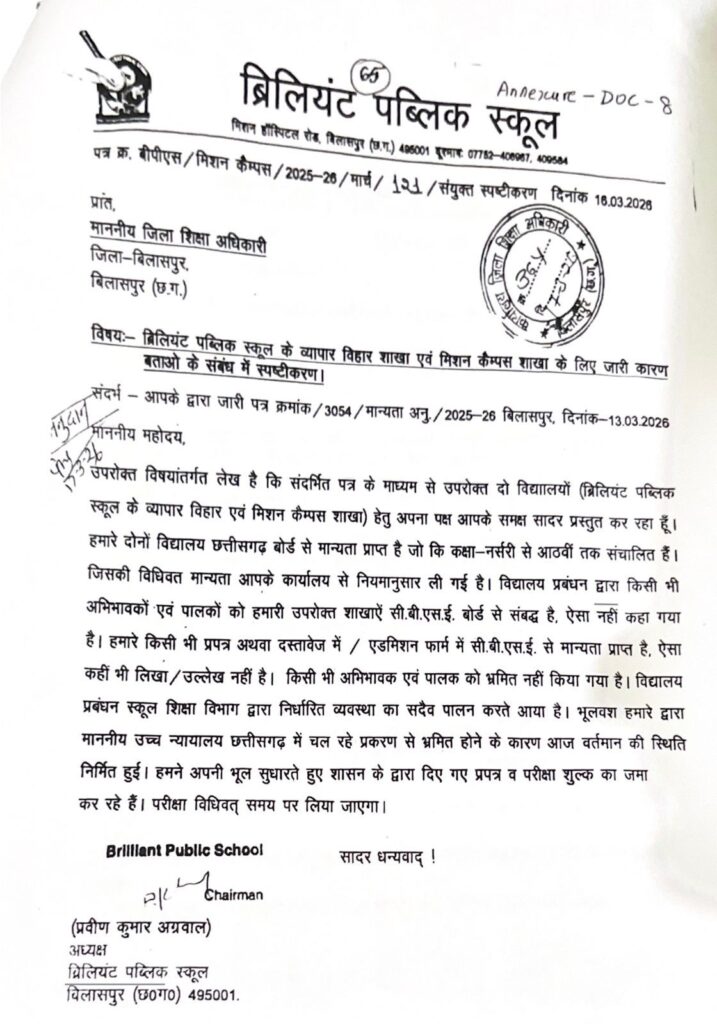 65
Annexure - DOC - 8
ब्रिलियंट पब्लिक स्कूल
मिशन हॉस्पिटल रोड, बिलासपुर (छ.ग.) 495001 दूरभाष: 07752-408967, 409584
पत्र क्र. बीपीएस/मिशन कैम्पस/2025-26/मार्च/ 121 /संयुक्त स्पष्टीकरण दिनांक 16.03.2026
प्रांत,
माननीय जिला शिक्षा अधिकारी
जिला-बिलासपुर,
बिलासपुर (छ.ग.)
कार्यालय जिला शिक्षा अधिकारी
विषयः- ब्रिलियंट पब्लिक स्कूल के व्यापार विहार शाखा एवं मिशन कैम्पस शाखा के लिए जारी कारण
बताओ के संबंध में स्पष्टीकरण।
संदर्भ - आपके द्वारा जारी पत्र क्रमांक/3054/मान्यता अनु./2025-26 बिलासपुर, दिनांक-13.03.2026
माननीय महोदय,
उपरोक्त विषयांतर्गत लेख है कि संदर्भित पत्र के माध्यम से उपरोक्त दो विद्याालयों (ब्रिलियंट पब्लिक
स्कूल के व्यापार विहार एवं मिशन कैम्पस शाखा) हेतु अपना पक्ष आपके समक्ष सादर प्रस्तुत कर रहा हूँ।
हमारे दोनों विद्यालय छत्तीसगढ़ बोर्ड से मान्यता प्राप्त है जो कि कक्षा-नर्सरी से आठवीं तक संचालित हैं।
जिसकी विधिवत मान्यता आपके कार्यालय से नियमानुसार ली गई है। विद्यालय प्रबंधन द्वारा किसी भी
अभिभावकों एवं पालकों को हमारी उपरोक्त शाखाऐं सी.बी.एस.ई. बोर्ड से संबद्ध है, ऐसा नहीं कहा गया
है। हमारे किसी भी प्रपत्र अथवा दस्तावेज में / एडमिशन फार्म में सी.बी.एस.ई. से मान्यता प्राप्त है, ऐसा
कहीं भी लिखा/उल्लेख नहीं है। किसी भी अभिभावक एवं पालक को भ्रमित नहीं किया गया है। विद्यालय
प्रबंधन स्कूल शिक्षा विभाग द्वारा निर्धारित व्यवस्था का सदैव पालन करते आया है। भूलवश हमारे द्वारा
माननीय उच्च न्यायालय छत्तीसगढ़ में चल रहे प्रकरण से भ्रमित होने के कारण आज वर्तमान की स्थिति
निर्मित हुई। हमने अपनी भूल सुधारते हुए शासन के द्वारा दिए गए प्रपत्र व परीक्षा शुल्क का जमा
कर रहे हैं। परीक्षा विधिवत् समय पर लिया जाएगा।
Brilliant Public School
सादर धन्यवाद् !
Chairman
(प्रवीण कुमार अग्रवाल)
अध्यक्ष
ब्रिलियंट पब्लिक स्कूल
बिलासपुर (छ0ग0) 495001.